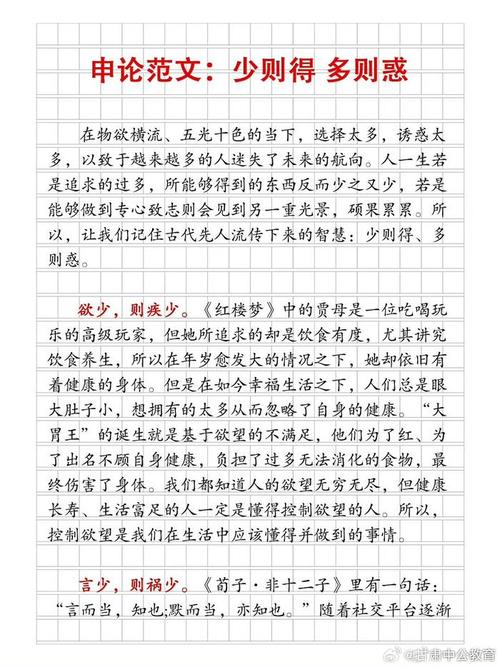 申论范文：少则得 多则惑
在物欲横流、五光十色的当下，选择太多，诱惑太
多，以致于越来越多的人迷失了未来的航向。人一生若
是追求的过多，所能够得到的东西反而少之又少，若是
能够做到专心致志则会见到另一重光景，硕果累累。所
以，让我们记住古代先人流传下来的智慧：少则得、多
则惑。
欲少，则疾少。《红楼梦》中的贾母是一位吃喝玩
乐的高级玩家，但她所追求的却是饮食有度，尤其讲究
饮食养生，所以在年岁愈发大的情况之下，她却依旧有
着健康的身体。但是在如今幸福生活之下，人们总是眼
大肚子小，想拥有的太多从而忽略了自身的健康。“大
胃王”的诞生就是基于欲望的不满足，他们为了红、为
了出名不顾自身健康，负担了过多无法消化的食物，最
终伤害了身体。我们都知道人的欲望无穷无尽，但健康
长寿、生活富足的人一定是懂得控制欲望的人。所以，
控制欲望是我们在生活中应该懂得并做到的事情。
言少，则祸少。《荀子·非十二子》里有一句话：
“言而当，知也;默而当，亦知也。”随着社交平台逐渐
@甘肃中公教育